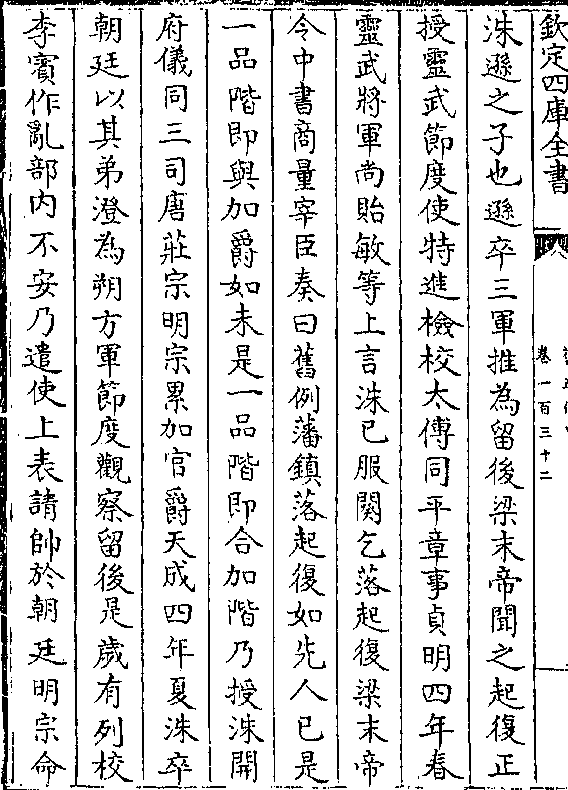 欽定四庫全書
卷一百三十二
洙遜之子也遜卒三軍推為留後梁末帝聞之起復正
授靈武節度使特進檢校太傅同平章事貞明四年春
靈武將軍尚貽敏等上言洙已服闋乞落起復梁末帝
令中書商量宰臣奏曰舊例藩鎮落起復如先人已是
一品階即與加爵如未是一品階即合加階乃授洙開
府儀同三司唐莊宗明宗累加官爵天成四年夏洙卒
朝廷以其弟澄為朔方軍節度觀察留後是歲有列校
李賓作亂部内不安乃遣使上表請帥於朝廷明宗命